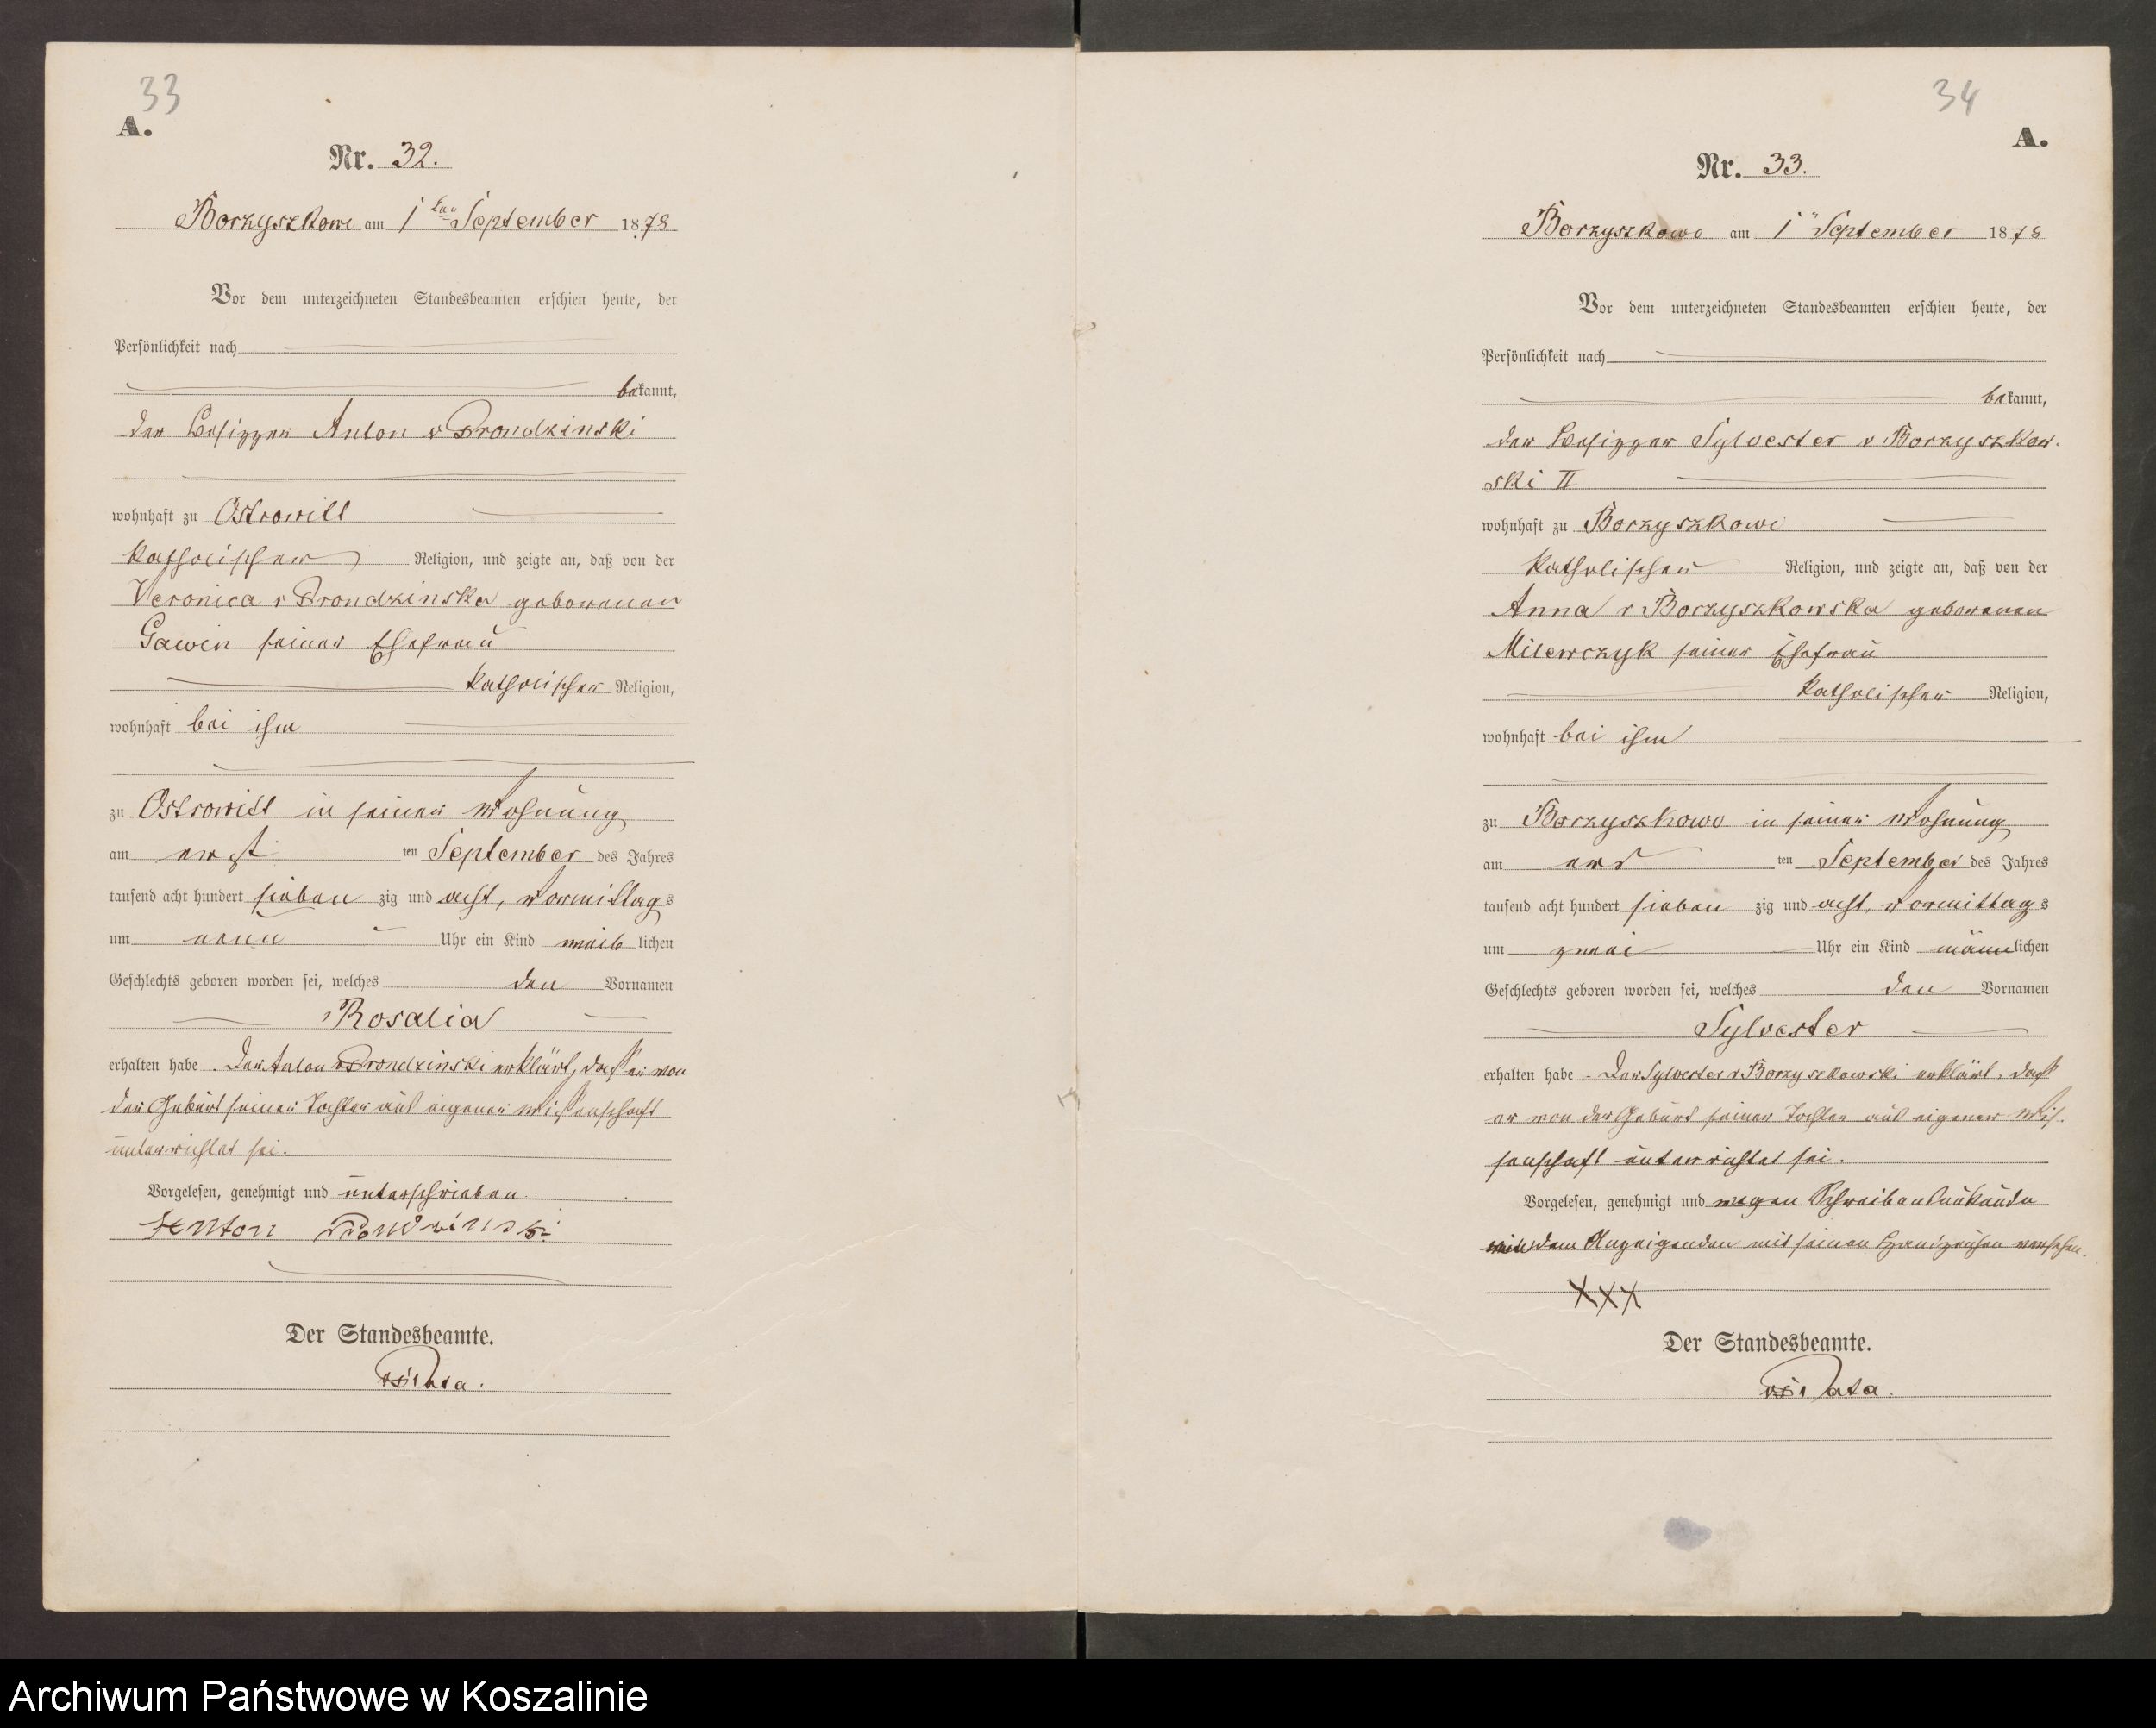 33
A.
Nr. 32.
Borzyszkowo am 1ten September 1878
Vor dem unterzeichneten Standesbeamten erschien heute, der
Persönlichkeit nach
bekannt,
der Besitzer Anton v Prondzinski
wohnhaft zu Ostrowitt
katholischer Religion, und zeigte an, daß von der
Veronica v Prondzinska geborenen
Gawin seiner Ehefrau
katholischer Religion,
wohnhaft bei ihm
zu Ostrowitt in seiner Wohnung
am erst ten September des Jahres
tausend acht hundert sieben zig und acht, Vormittags
um neun Uhr ein Kind weiblichen
Geschlechts geboren worden sei, welches den Vornamen
Rosalia
erhalten habe. Der Anton v Prondzinski erklärt, daß er von
der Geburt seiner Tochter aus eigener Wissenschaft
unterrichtet sei.
Vorgelesen, genehmigt und unterschrieben.
Anton
Der Standesbeamte.
34
A.
Nr. 33.
Borzyszkowo am 1" September 1878
Vor dem unterzeichneten Standesbeamten erschien heute, der
Persönlichkeit nach
bekannt,
der Besitzer Sylvester v Borzyszkow-
ski II
wohnhaft zu Borzyszkowo
katholischer Religion, und zeigte an, daß von der
Anna v Borzyszkowska geborenen
Milewczyk seiner Ehefrau
katholischer Religion,
wohnhaft bei ihm
zu Borzyszkowo in seiner Wohnung
am ers ten September des Jahres
tausend acht hundert sieben zig und acht, Vormittags
um zwei Uhr ein Kind männlichen
Geschlechts geboren worden sei, welches den Vornamen
Sylvester
erhalten habe. Der Sylvester v Borzyszkowski erklärt, daß
er von der Geburt seiner Tochter aus eigener Wis-
senschaft unterrichtet sei.
Vorgelesen, genehmigt und wegen Schreibensunkunde
dem Anzeigenden mit seinen Handzeichen versehen.
XXX
Der Standesbeamte.
Archiwum Państwowe w Koszalinie